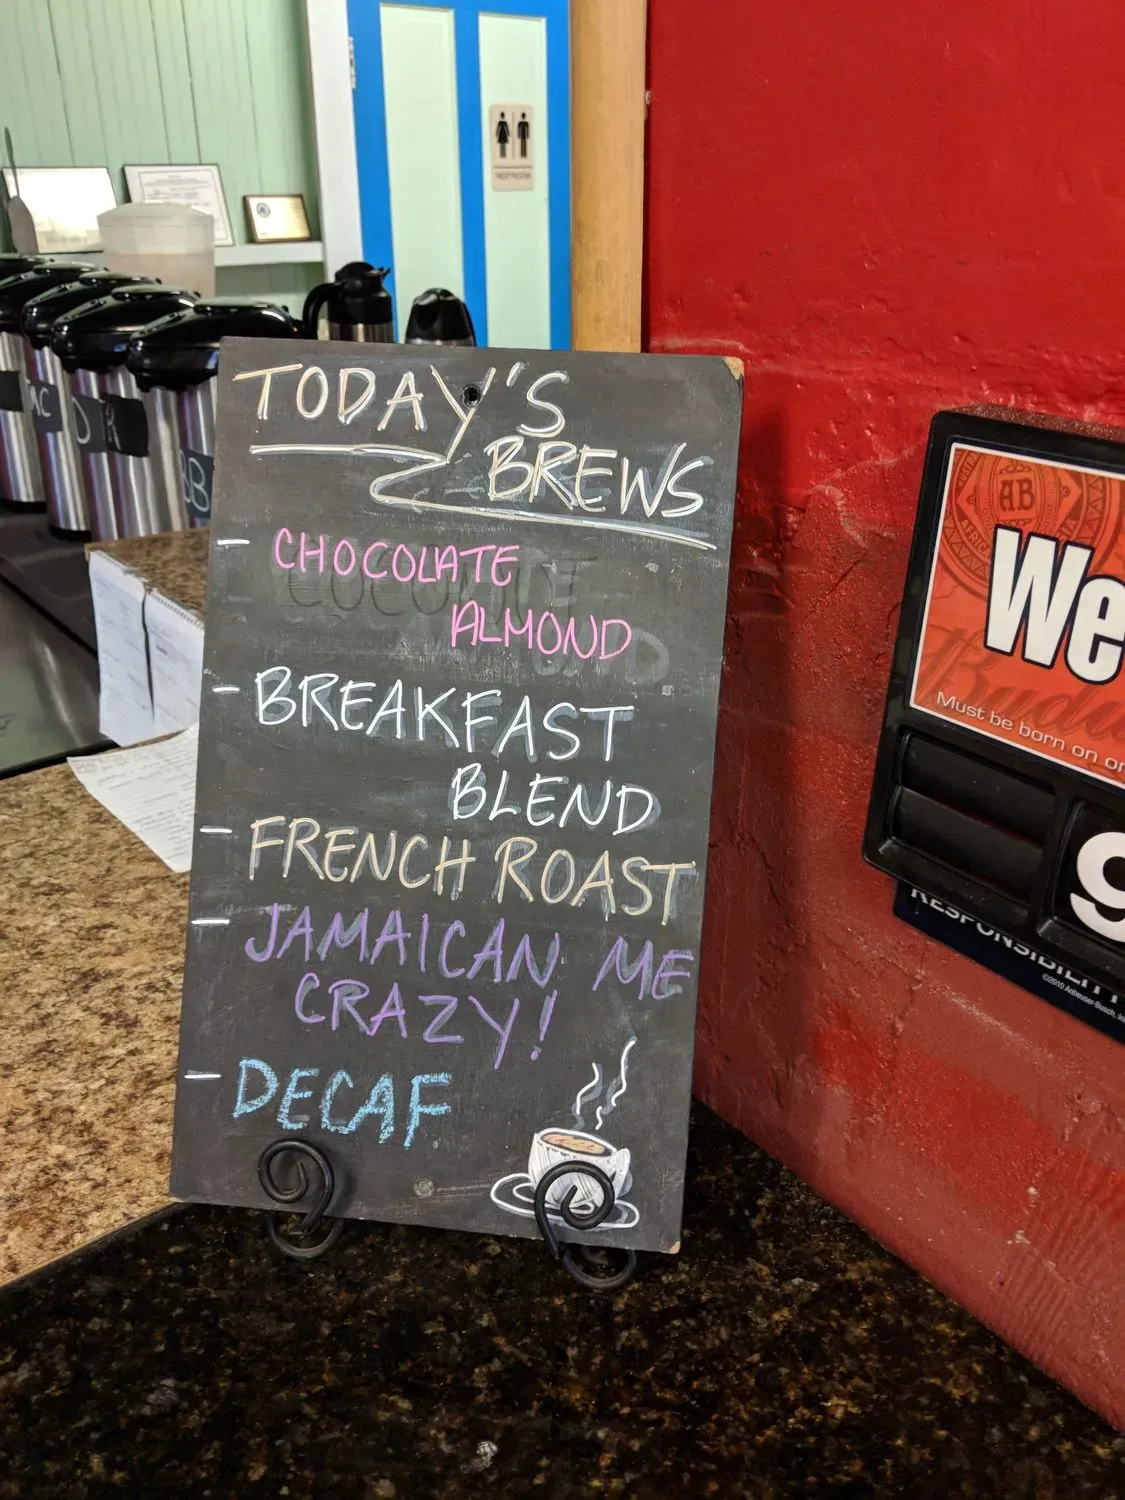 RESTROOM
TODAY'S
BREWS
- CHOCOLATE
ALMOND
- BREAKFAST
BLEND
- FRENCH ROAST
- JAMAICAN ME
CRAZY!
- DECAF
D
R
BB
AB
We
Must be born on or
9
RESPONSIBILIT
©2010 Anheuser-Busch,